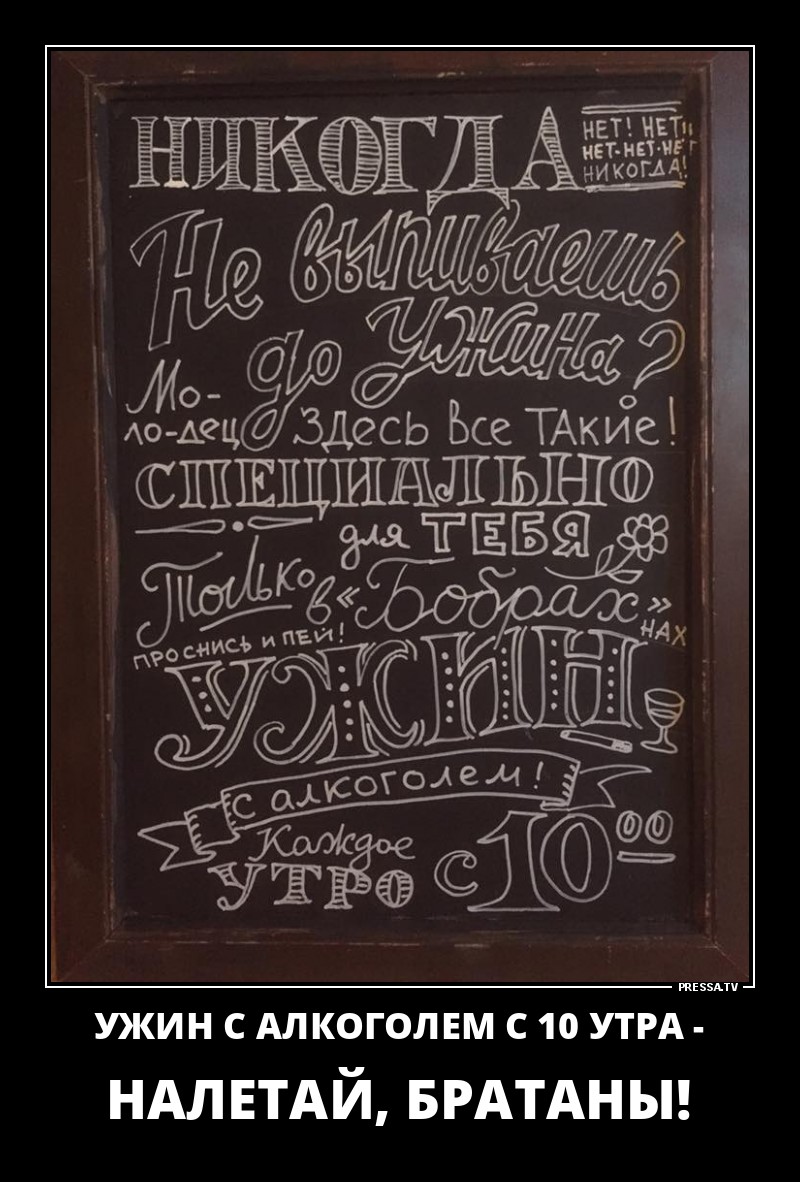 НИКОГДА
НЕТ! НЕТ!!
НЕТ-НЕТ-НЕТ
НИКОГДА!
Не выпиваешь
до ужина?
Мо-
ло-дец
Здесь все ТАкие!
СПЕЦИАЛЬНО
для ТЕБЯ
Только в «Бобрах»
НАХ
ПРОСНИСЬ И ПЕЙ!
УЖИН
с алкоголем!
Каждое
УТРО с 10 00
PRESSA.TV
УЖИН С АЛКОГОЛЕМ С 10 УТРА -
НАЛЕТАЙ, БРАТАНЫ!